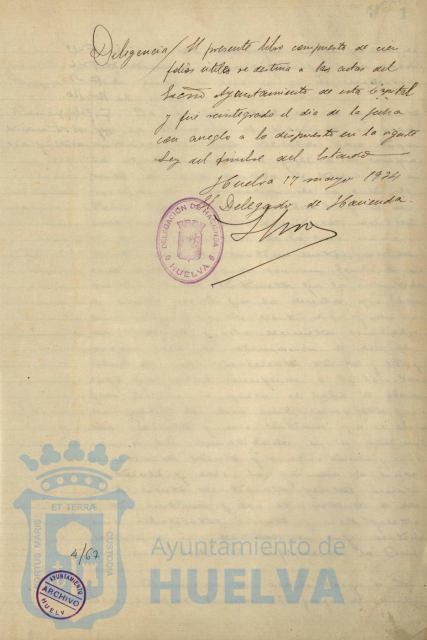 Deligencia/ El presente libro compuesto de cien
folios utiles se destina a las actas del
Excmo Ayuntamiento de esta Capital
y fué reintegrado el dia de la fecha
con arreglo a lo dispuesto en la vigente
Ley del timbre del Estado
Huelva 17 mayo 1924
El Delegado de Hacienda.
DELEGACIÓN DE HACIENDA
HUELVA
PORTUS MARIS ET TERRÆ CUSTODIA
4/67
Ayuntamiento de
HUELVA
AYUNTAMIENTO
ARCHIVO
HUELVA